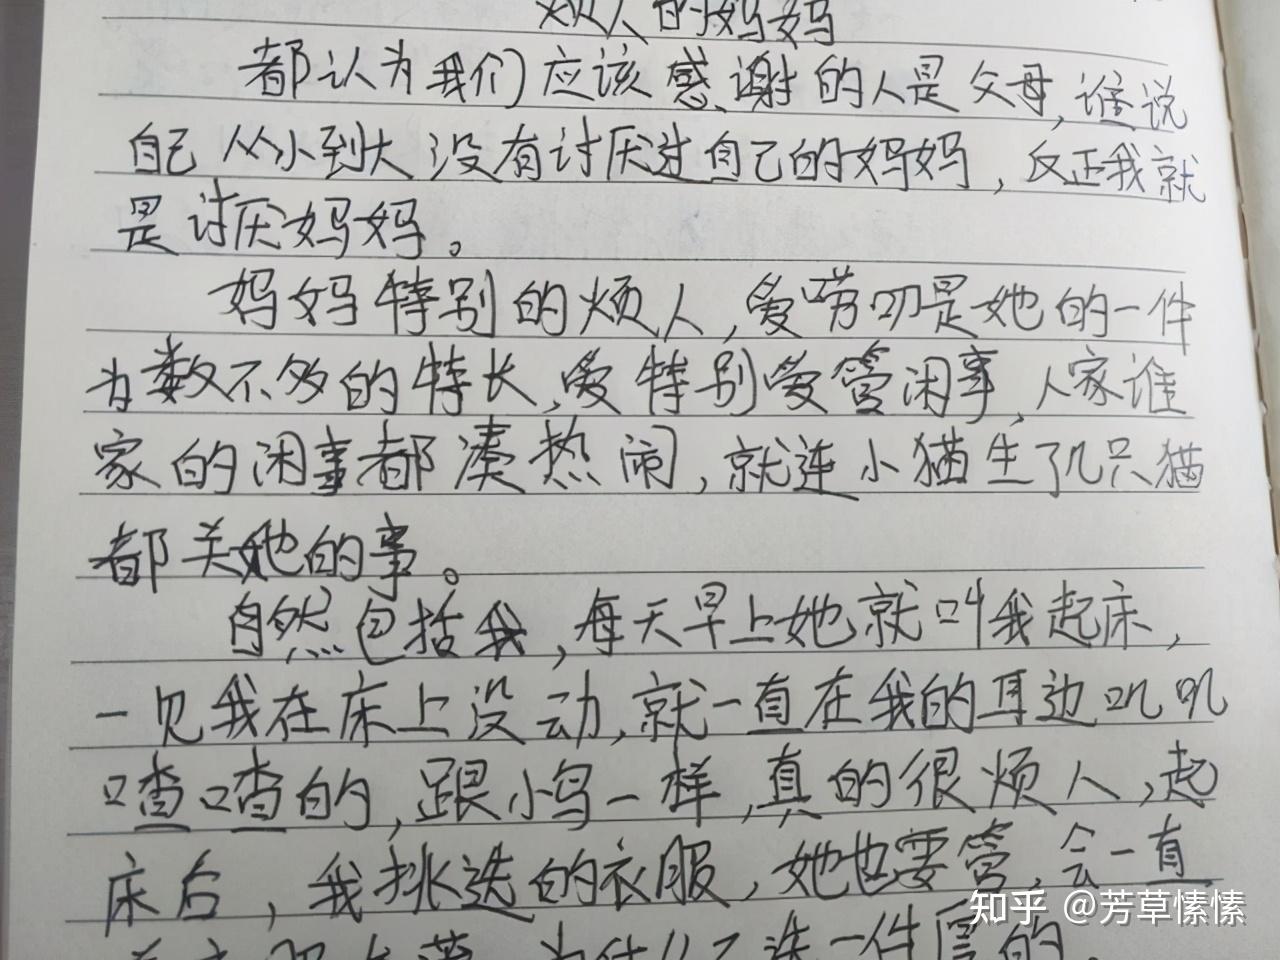 烦人的妈妈
都认为我们应该感谢的人是父母,谁说
自己从小到大没有讨厌过自己的妈妈,反正我就
是讨厌妈妈。
妈妈特别的烦人,爱唠叨是她的一件
为数不多的特长,爱特别爱管闲事,人家谁
家的闲事都凑热闹,就连小猫生了几只猫
都关她的事。
自然包括我,每天早上她就叫我起床,
一见我在床上没动,就一直在我的耳边叽叽
喳喳的,跟小鸟一样,真的很烦人,起
床后,我挑选的衣服,她也要管,会一直
为什么不选一件厚的。
知乎 @芳草愫愫